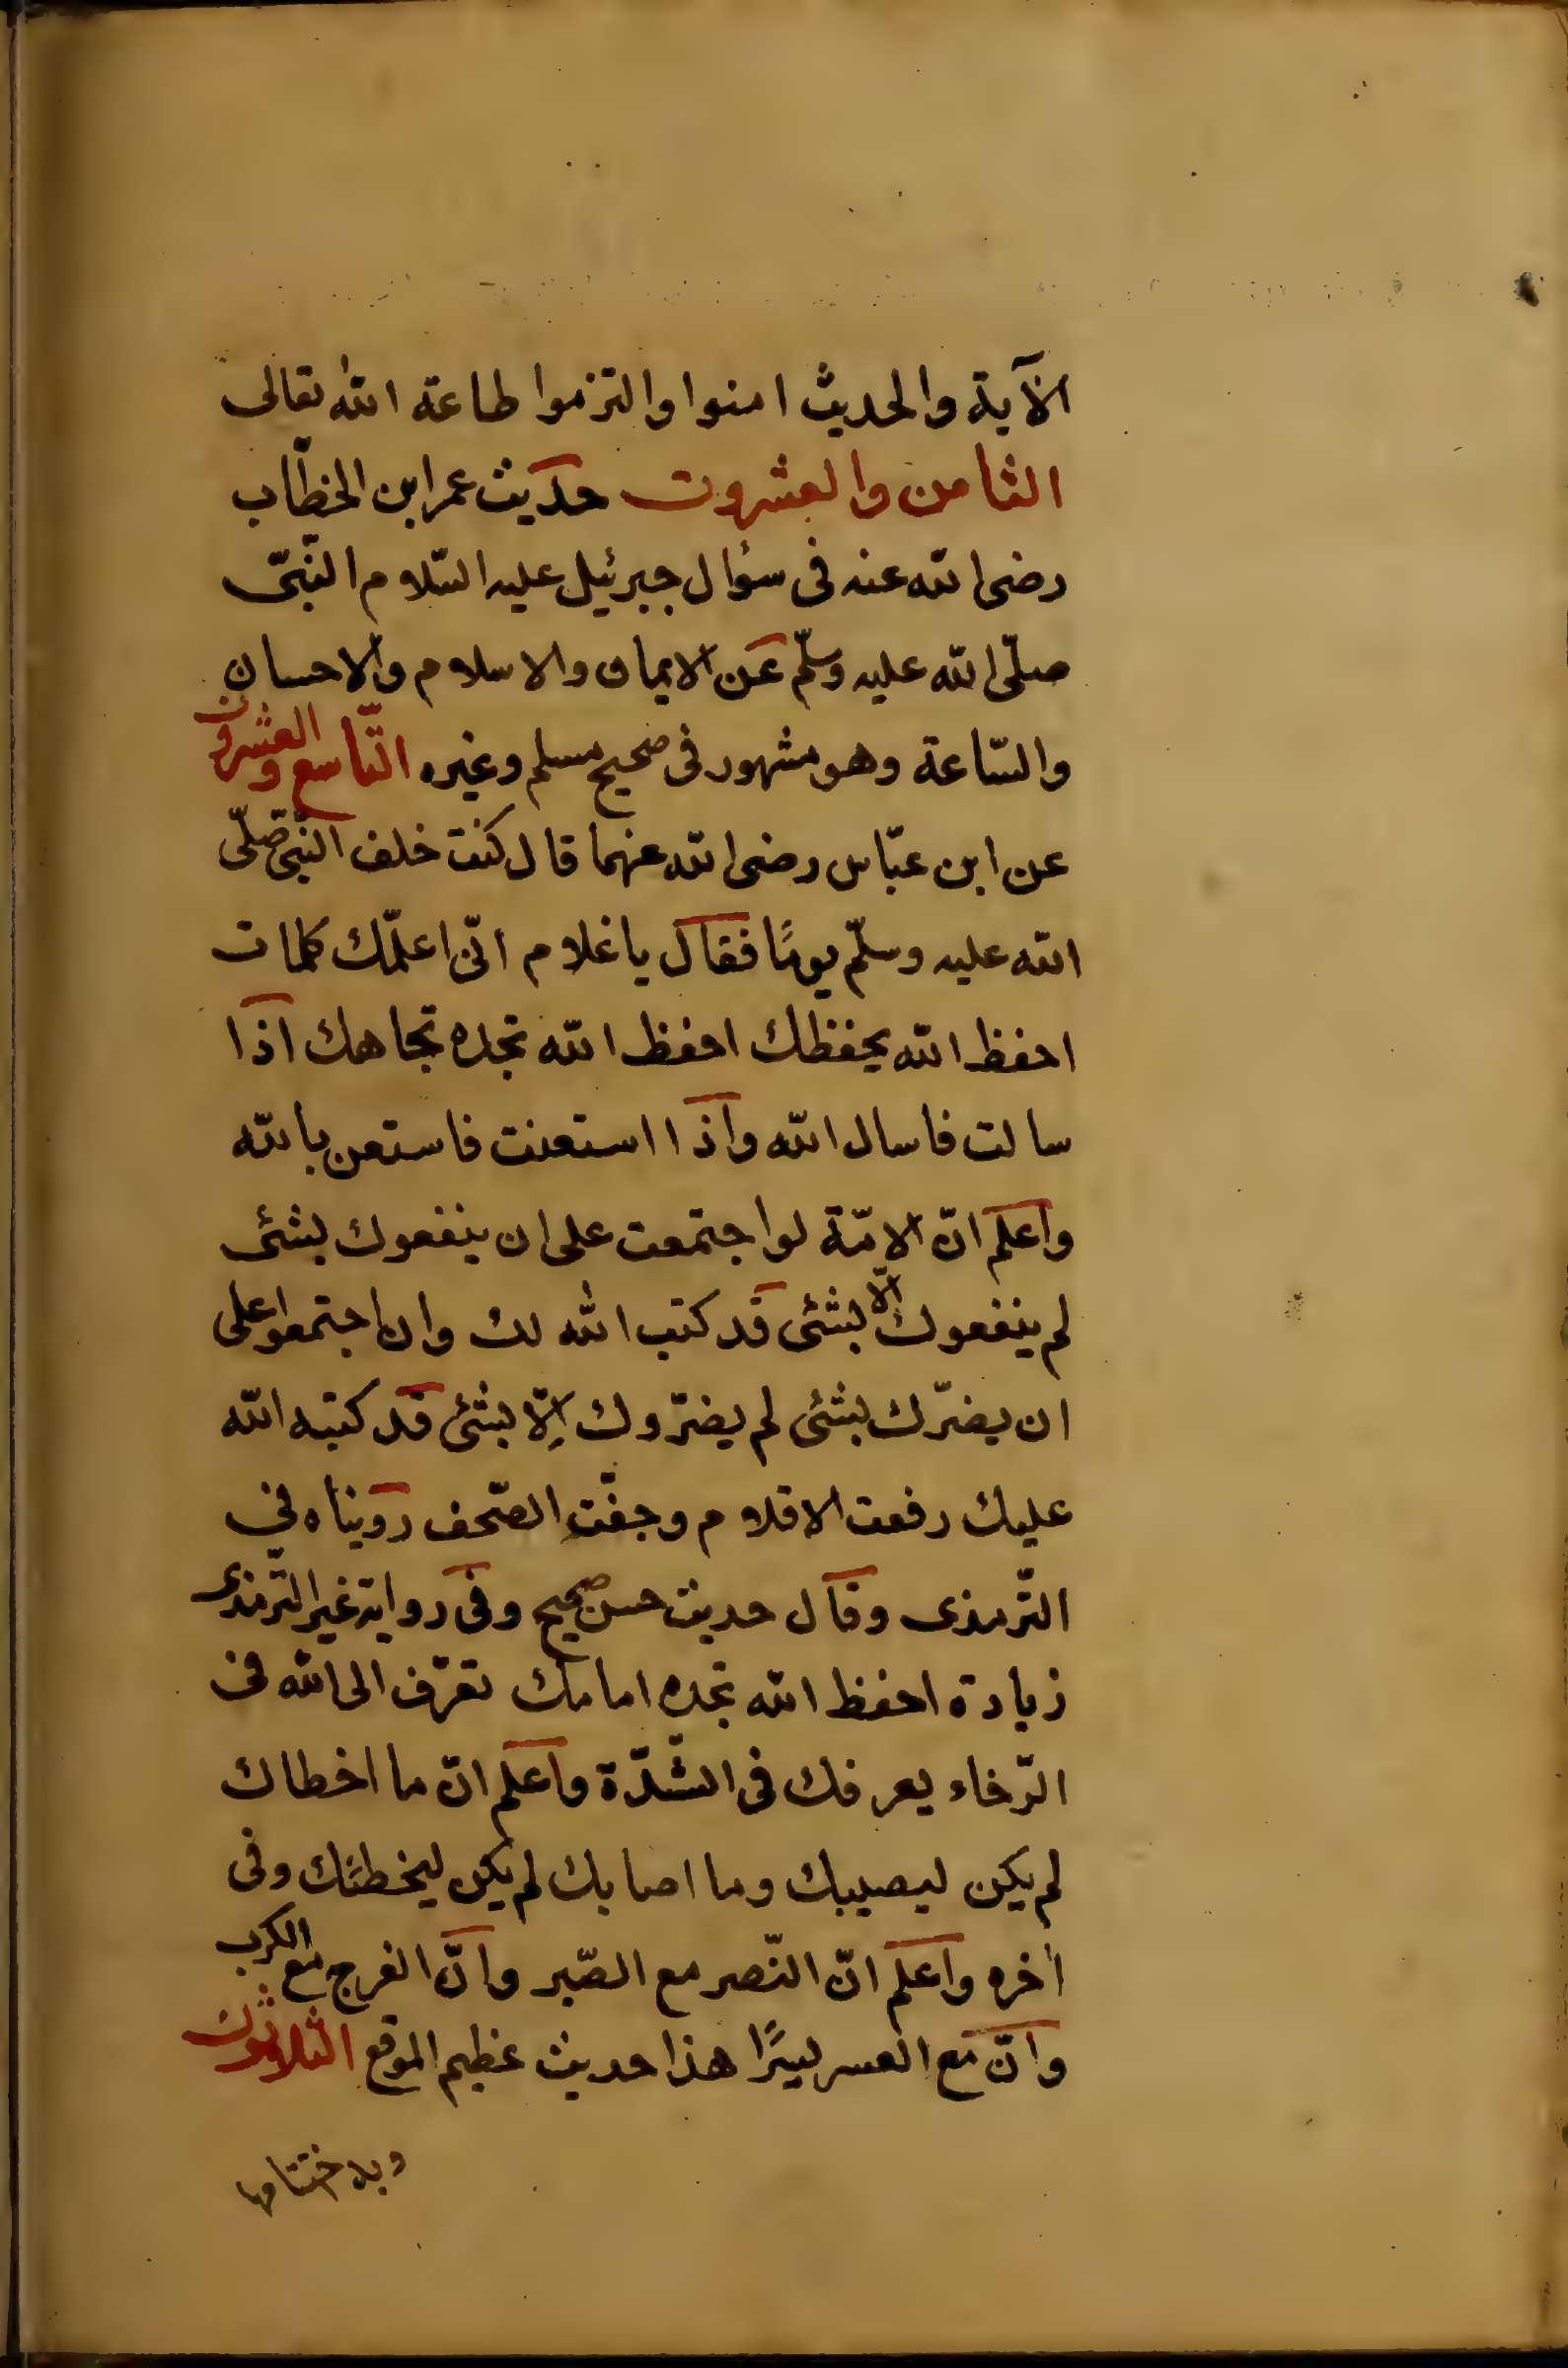 الآية والحديث امنوا والتزموا طاعة الله تعالى
الثامن والعشرون حديث عمر ابن الخطّاب
رضى الله عنه فى سؤال جبرئيل عليه السّلام النّبىّ
صلّى الله عليه وسلّم عن الايمان والاسلام والاحسان
والسّاعة وهو مشهور فى صحيح مسلم وغيره التّاسع والعشرون
عن ابن عبّاس رضى الله عنهما قال كنت خلف النّبىّ صلّى
الله عليه وسلّم يومًا فقال يا غلام انّى اعلّمك كلمات
احفظ الله يحفظك احفظ الله تجده تجاهك اذا
سالت فاسال الله واذا استعنت فاستعن بالله
واعلم انّ الامّة لو اجتمعت على ان ينفعوك بشئ
لم ينفعوك الّا بشئ قد كتب الله لك وان اجتمعوا على
ان يضرّك بشئ لم يضرّوك الّا بشئ قد كتبه الله
عليك رفعت الاقلام وجفّت الصّحف رويناه في
التّرمذى وقال حديث حسن صحيح وفى رواية غير التّرمذى
زيادة احفظ الله تجده امامك تعرّف الى الله فى
الرّخاء يعرفك فى الشّدّة واعلم انّ ما اخطاك
لم يكن ليصيبك وما اصابك لم يكن ليخطئك وفى
أخره واعلم انّ النّصر مع الصّبر وانّ الفرج مع الكرب
وانّ مع العسر يسرًا هذا حديث عظيم الموقع الثلاثون
وبه اختتامها